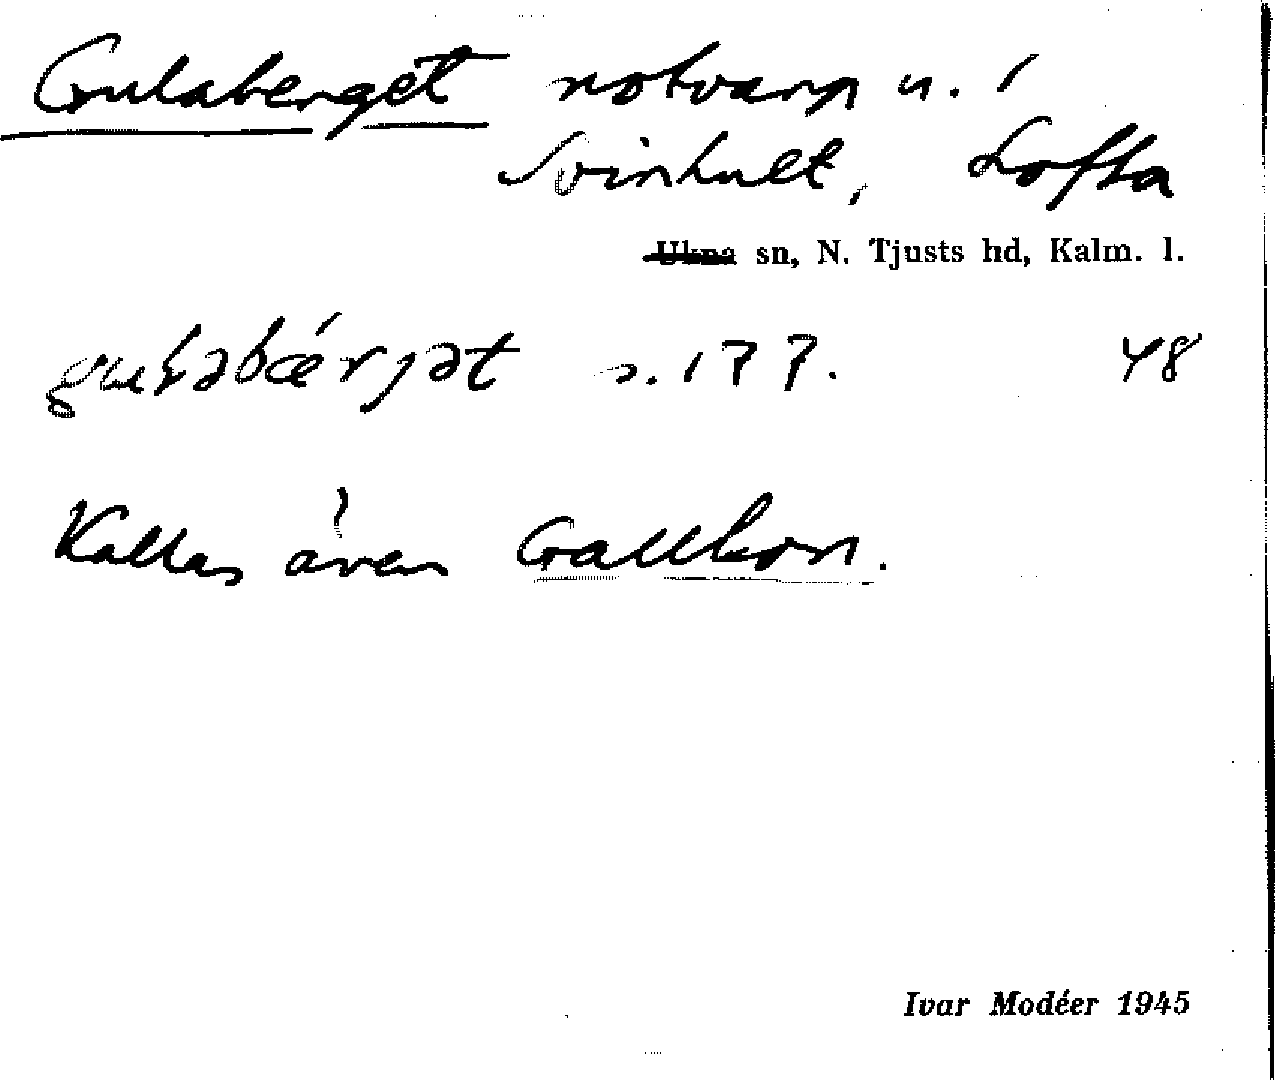 Gulaberget notvarp u. i
Svinhult, Lofta
Ukna sn, N. Tjusts hd, Kalm. l.
s. 177. 48
Kallas även Gallkon.
Ivar Modéer 1945